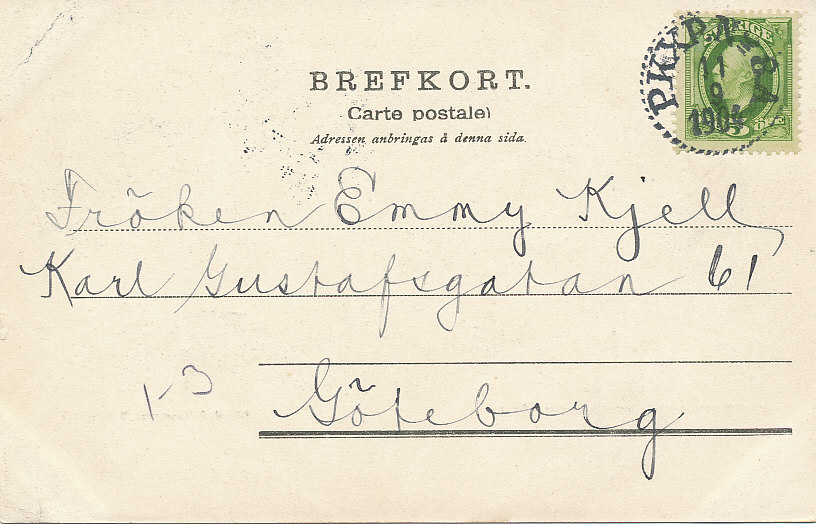 BREFKORT.
Carte postale)
Adressen anbringas å denna sida.
SVERIGE
PKXP
17
190
5 ÖRE
Fröken Emmy Kjell,
Karl Gustafsgatan 61
Göteborg
1-3